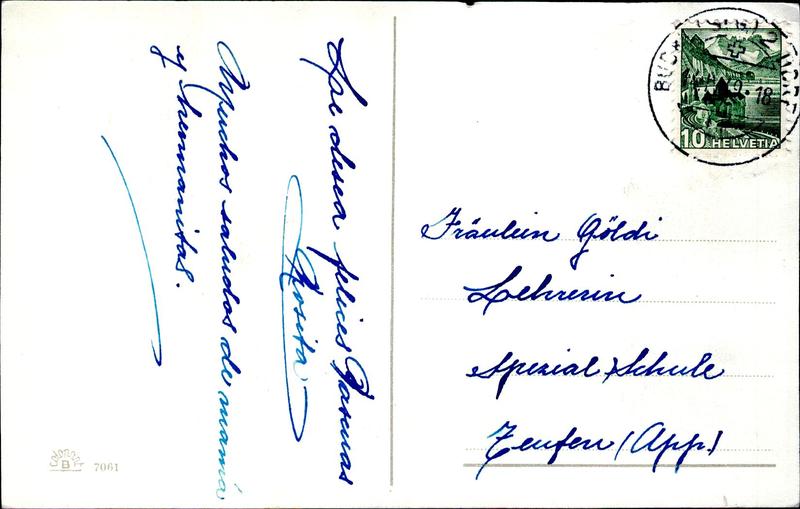 Le desea felices Pascuas
Rosita
Muchos saludos de mamá
y hermanitas.
Fräulein Göldi
Lehrerin
Spezial Schule
Teufen (App.)
10 HELVETIA
B
7061